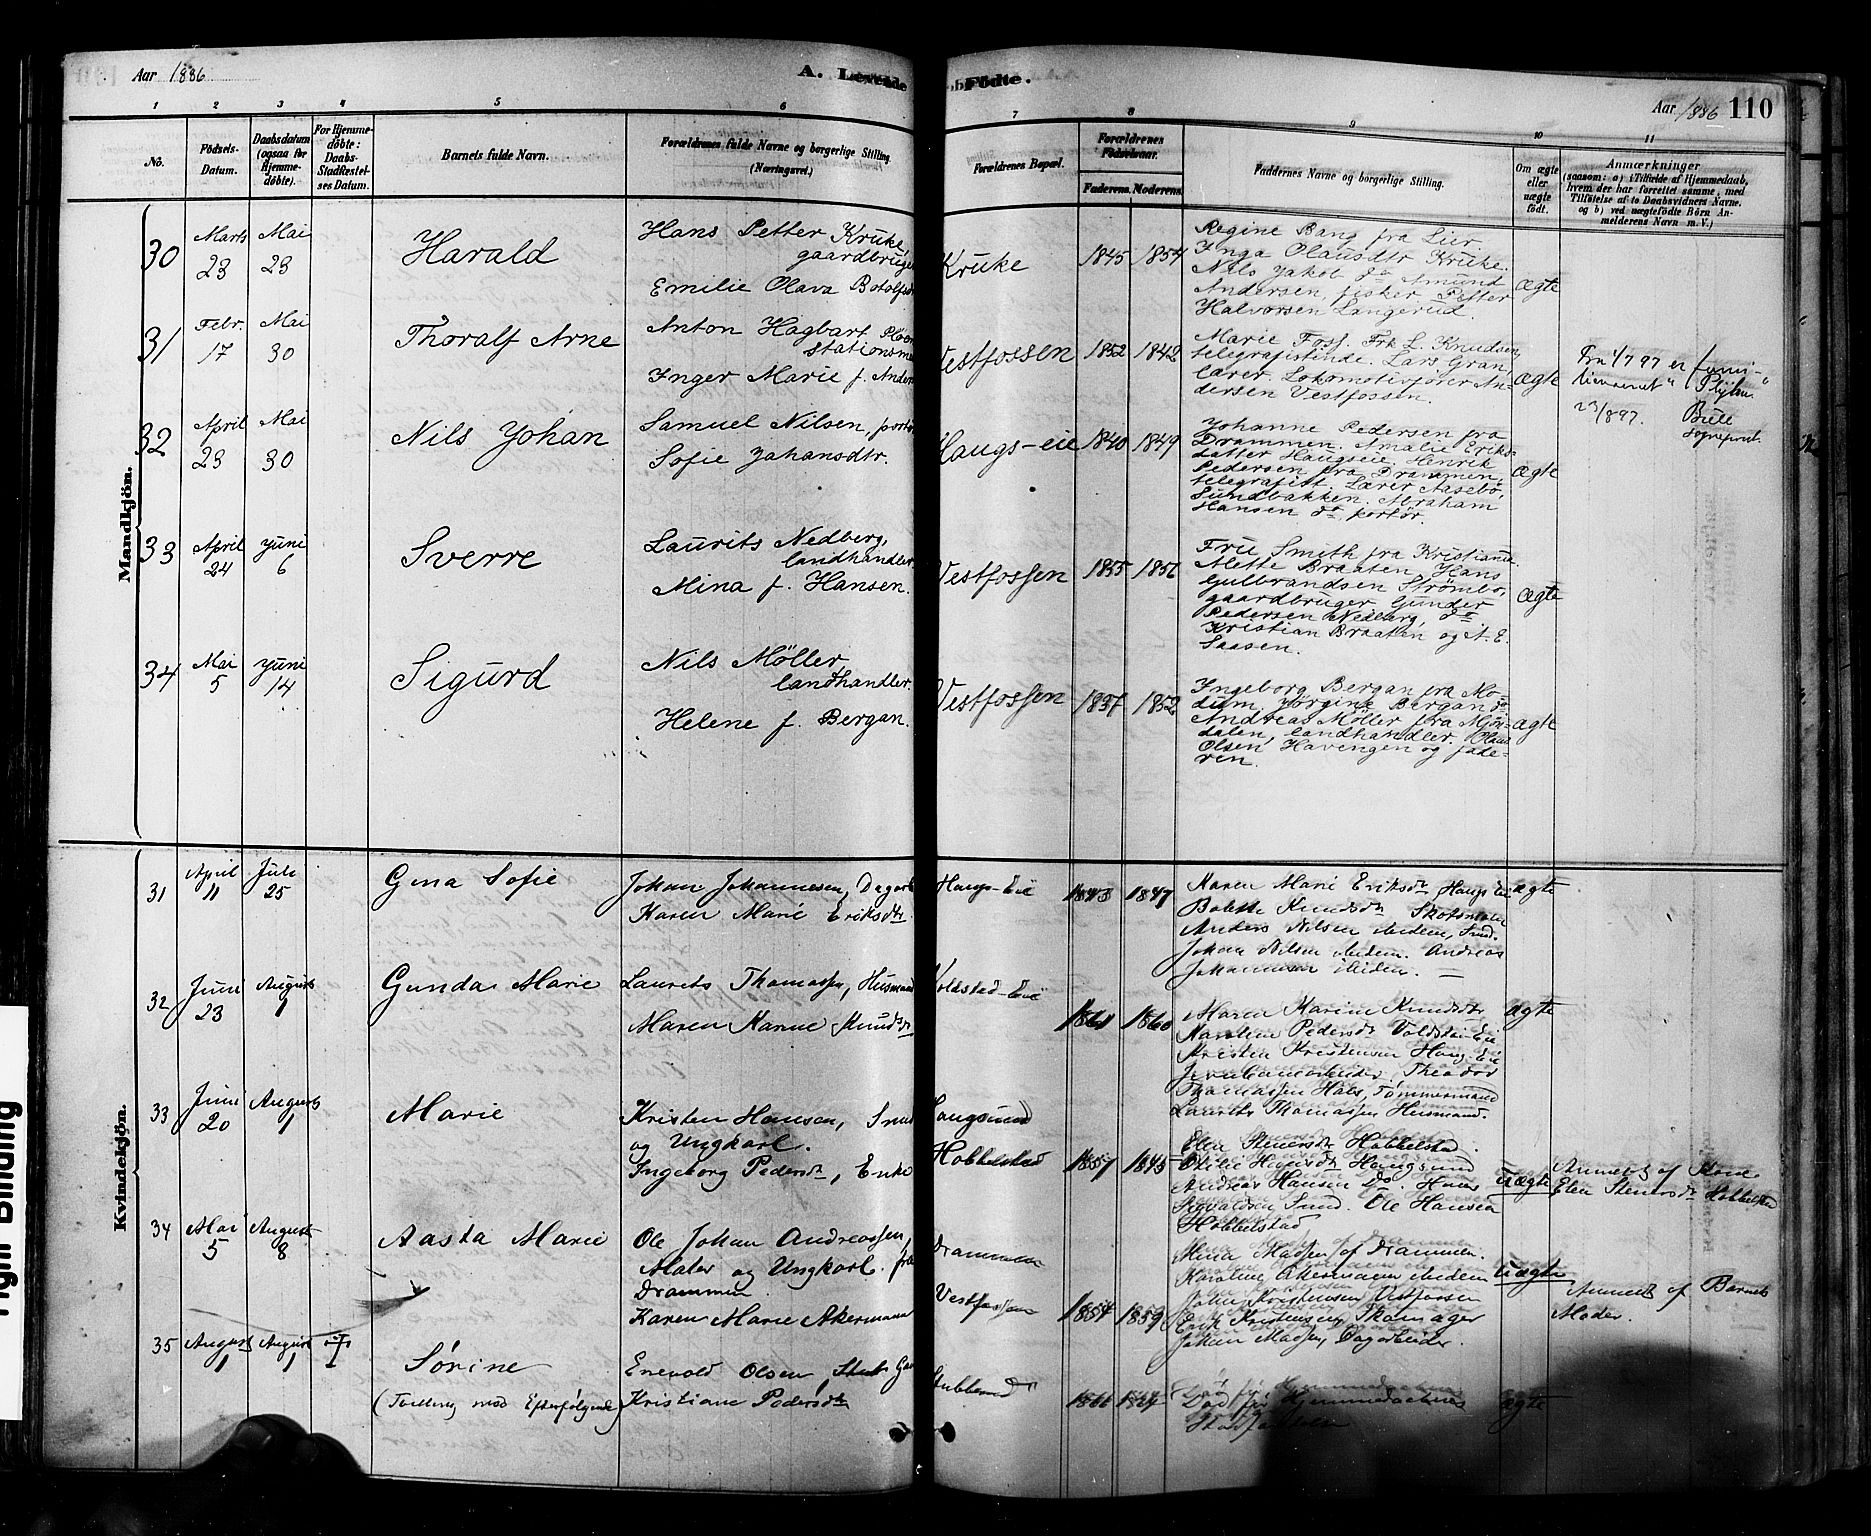 Aar 1886
A. Levende
Födte.
Aar 1886 110
1 2 3 4 5 6 7 8 9 10 11
No.
Fødsels-
Datum.
Daabsdatum
(ogsaa for
Hjemme-
døbte).
For Hjemme-
døbte:
Daabs-
Stadfæstel-
ses Datum.
Barnets fulde Navn.
Forældrenes fulde Navne og borgerlige Stilling.
(Næringsvei.)
Forældrenes Bopæl.
Forældrenes
Födselsaar.
Faderens. Moderens.
Faddernes Navne og borgerlige Stilling.
Om ægte
eller
uægte
født.
Anmærkninger
(saasom: a) i Tilfælde af Hjemmedaab,
hvem der har forrettet samme, med
Tilføielse af to Daabsvidners Navne,
og b) ved uægtefödte Börn An-
melderens Navn m. V.)
Mandkjön.
30
Marts
23
Mai
23
Harald
Hans Petter Kruke,
gaardbruger
Emilie Olava Botolfsd
Kruke
1845 1854
Regine Bang fra Lier
Inga Olausdtr Kruke.
Nils Jakob do Amund
Andersen, fisker Petter
Halvorsen Langerud.
ægte
31
Febr.
17
Mai
30
Thoralf Arne
Anton Hagbart
stationsm
Inger Marie f. Anders
Vestfossen
1852 1842
Marie Foss. Frk L. Knudsen,
telegrafistinde. Lars Gran,
lærer. Lokomotivfører An-
dersen Vestfossen.
ægte
Fra 1/7 97 er fami-
lienavnet "
23/8 97. Bull
Sogneprest.
32
April
23
Mai
30
Nils Johan
Samuel Nilsen, portø
Sofie Johansdtr.
Haugs-eie
1840 1849
Johanne Pedersen fra
Drammen. Amalie Eriks-
datter Haugseie. Henrik
Pedersen fra Drammen,
telegrafist. Lærer Aasebø,
Sundbakken. Abraham
Hansen do, portör.
ægte
33
April
24
Juni
6
Sverre
Laurits Nedberg,
landhandler
Mina f. Hansen.
Vestfossen
1855 1856
Fru Smith fra Kristiania
Alette Braaten. Hans
Gulbrandsen Strømbo,
gaardbruger. Gunder
Pedersen Nedberg, do
Kristian Braaten og A. E.
Saasen.
ægte
34
Mai
5
Juni
14
Sigurd
Nils Møller,
landhandler.
Helene f. Bergan.
Vestfossen
1837 1852
Ingeborg Bergan fra Mo-
dum. Jørgine Bergan do.
Andreas Møller fra Mjøn-
dalen, landhandler.
Olsen, Havengen og fade-
ren.
ægte
Kvindekjön.
31
April
11
Juli
25
Gina Sofie
Johan Johannesen, Dagarb
Karen Marie Eriksdtr
Haugs-Eie
1843 1847
Karen Marie Eriksdtr Haugs Eie
Bolette Knudsdtr Skotsmoen
Anders Nilsen ibidem, Smd.
Johan Nilsen ibidem. Andreas
Johannesen ibidem. —
ægte
32
Juni
23
August
1
Gunda Marie
Laurits Thomassen, Husmand
Maren Karine Knudsdtr
Voldstad-Eie
1861 1860
Maren Karine Knudsdtr
Karoline Pedersdtr Voldstad-Eie
Kristen Kristensen Haug-Eie
Jernbanearbeider, Theodor
Thomassen Hals, Tømmermand
Laurits Thomassen Husmand.
ægte
33
Juni
20
August
1
Marie
Kristen Hansen, Smd
og Ungkarl.
Ingeborg Pedersdtr, Enke
Haugsund
Hobbelstad
1857 1845
Elen Stenersdtr Hobbelstad.
Otilie Hansdtr Haugsund
Andreas Hansen Do. Hans
Sigvaldsen Smd. Ole Hansen
Hobbelstad
uægte
Anmeldt af Kone
Elen Stenersdtr Hobbelstad
34
Mai
5
August
8
Aasta Marie
Ole Johan Andreassen,
Maler og Ungkarl. fra
Drammen.
Karen Marie Akermann
Drammen
Vestfossen
1854 1859
Mina Madsen af Drammen.
Karoline Akermann ibidem
John Kristensen Vestfossen
Erik Kristensen, Skomager
Johan Madsen, Dagarbeider.
uægte
Anmeldt af Barnets
Moder.
35
August
1
August
1
Sørine
(Tvilling med Efterfølgende)
Enevold Olsen Stub
Kristiane Pedersdtr
Stubberud
1866
Død før Hjemmedaabens
Stadfæstelse
ægte